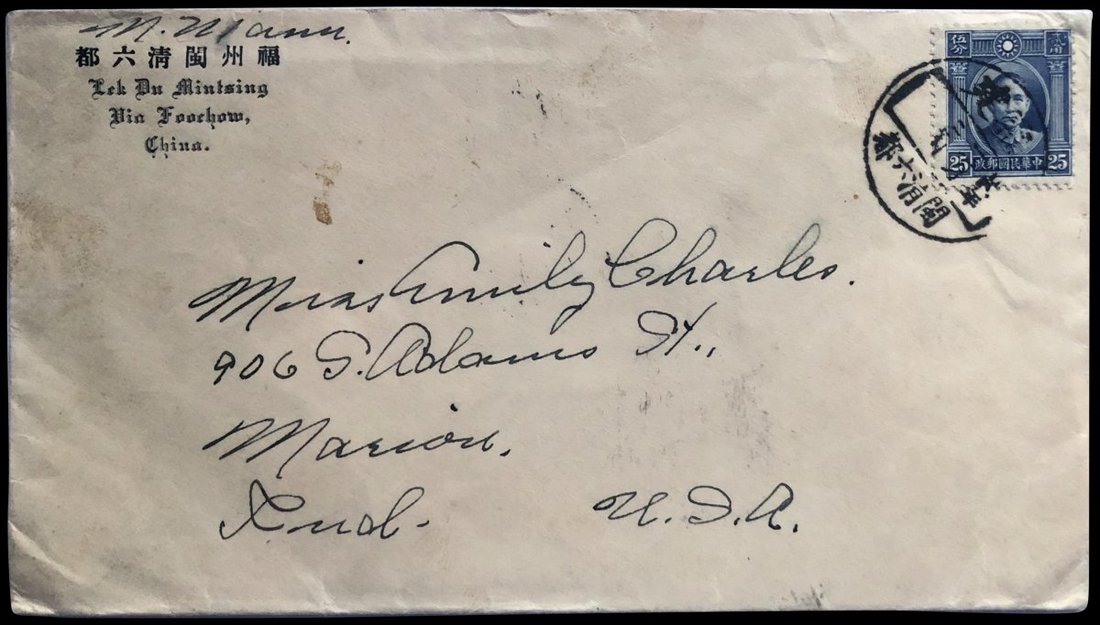 M. Mann.
都六清閩州福
Lek Du Mintsing
Via Foochow,
China.
伍分 貳角
25 政郵國民華中 25
閩清六都
Miss Emily Charles.
906 S. Adams St.,
Marion,
Ind. U.S.A.